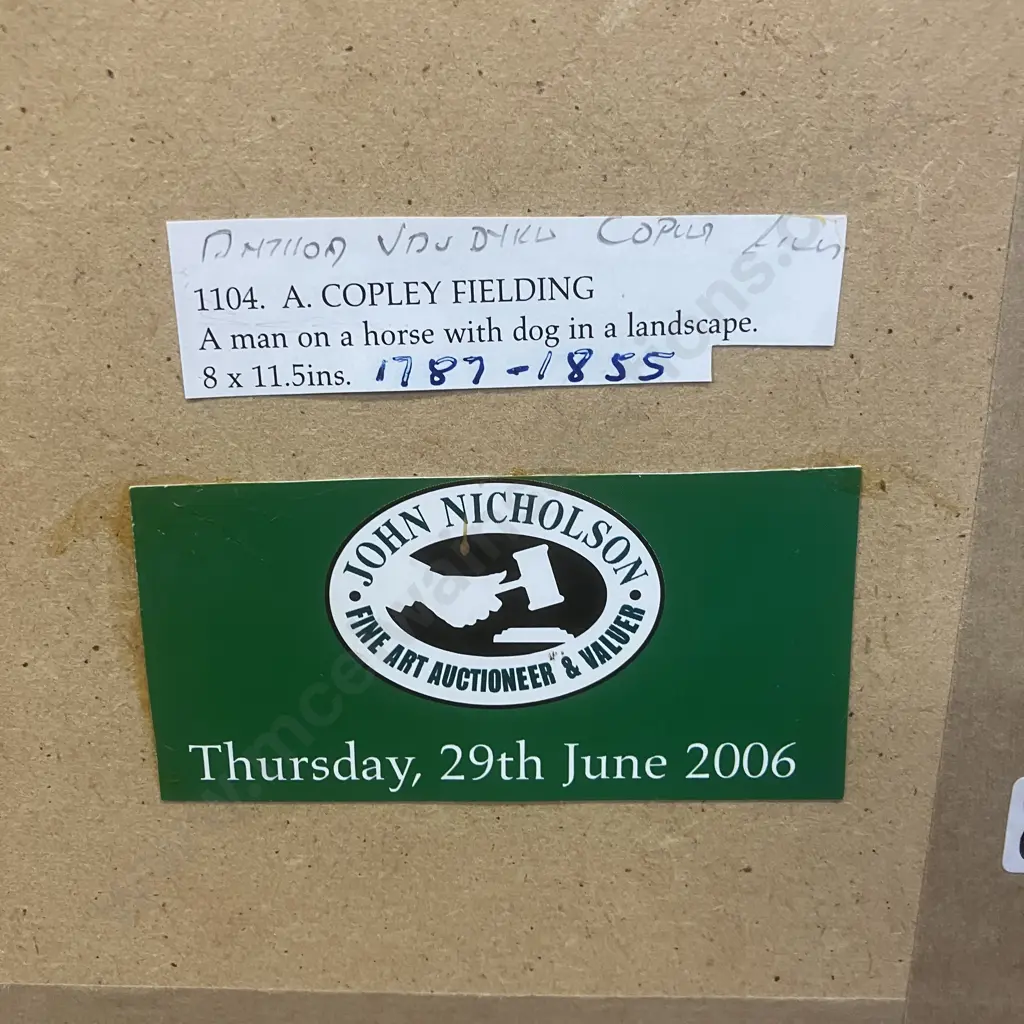 VAN DYKE COPLEY
1104. A. COPLEY FIELDING
A man on a horse with dog in a landscape.
8 x 11.5ins. 1787-1855
JOHN NICHOLSON
FINE ART AUCTIONEER & VALUER
Thursday, 29th June 2006